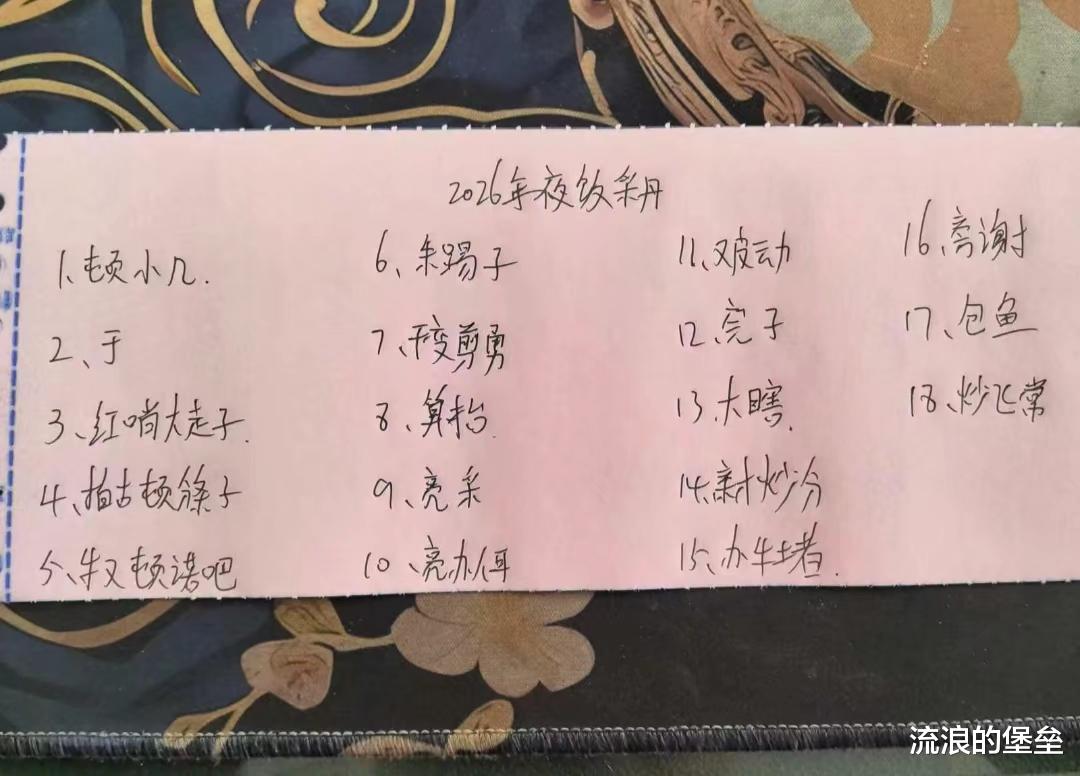 2026年夜饭采丹
1、顿小几.
2、于
3、红哨大走子.
4、古顿子
5、又顿诺吧
6、朱踢子
7、变剪勇
8、算抬.
9、亮采
10、亮办佴
11、动
12、完子
13、大瞎.
14、炒分
15、办牛堵.
16、旁谢
17、包鱼
18、炒飞常
流浪的堡垒